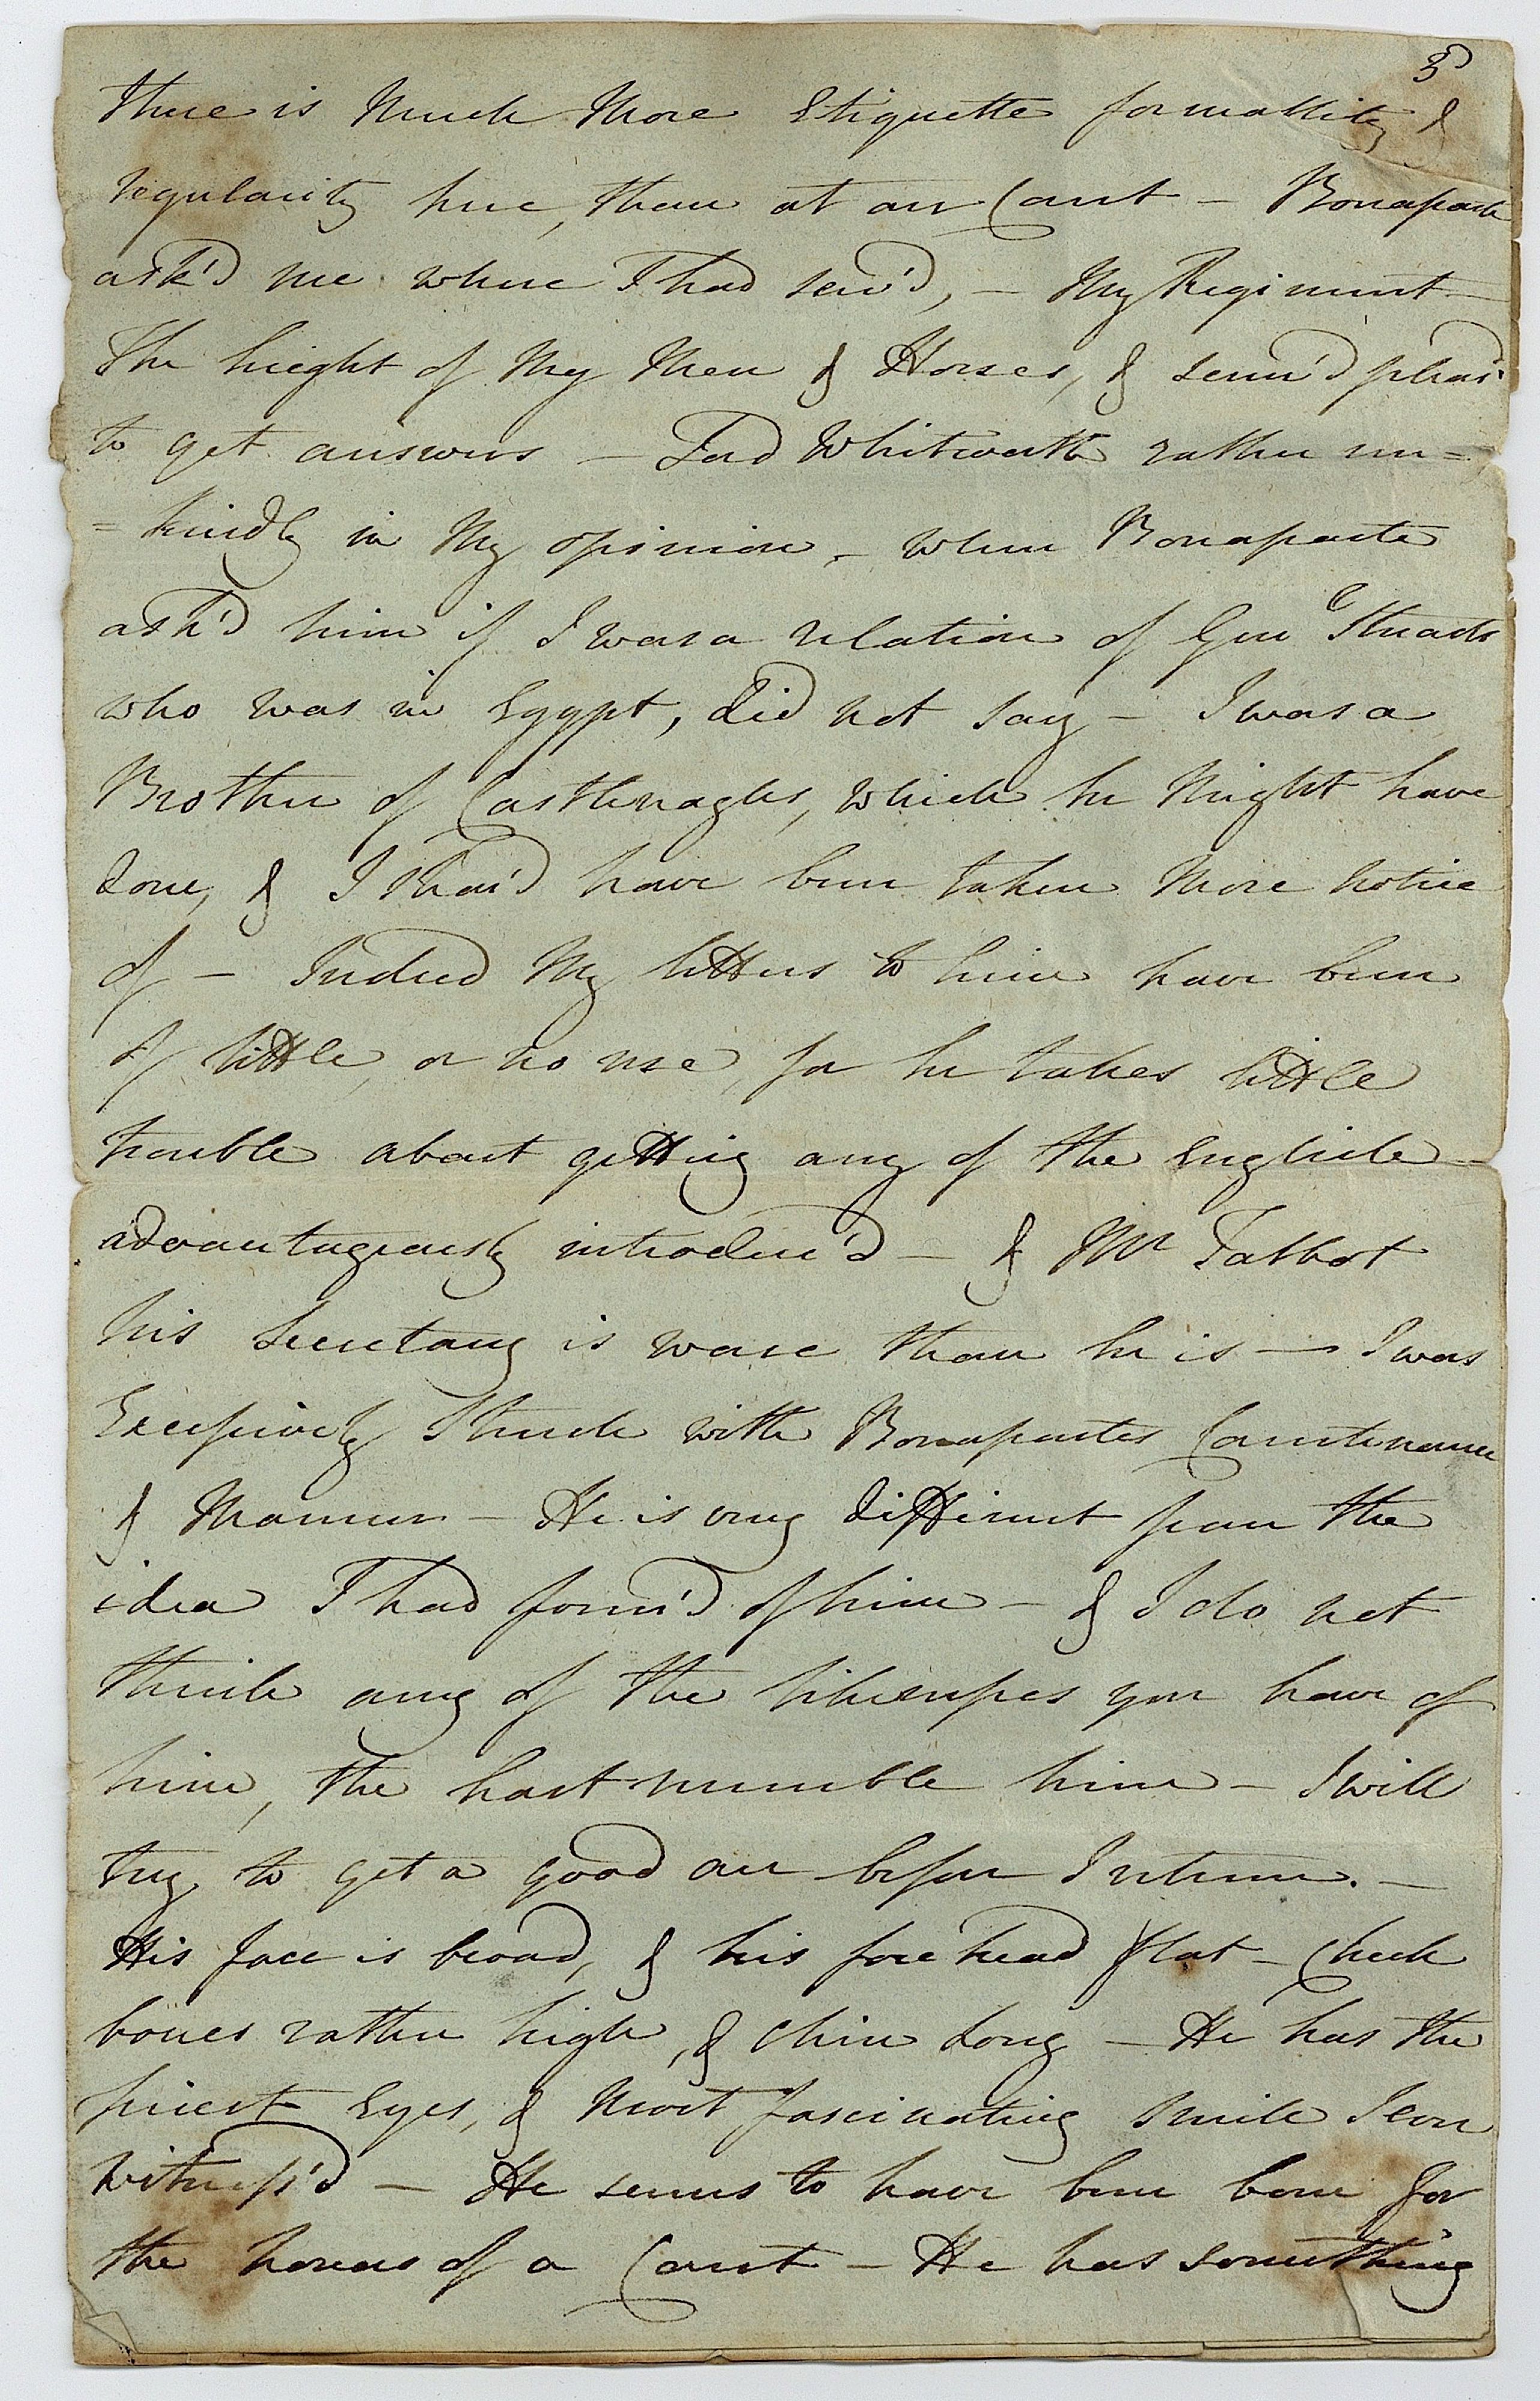 3
There is Much More Etiquette formallity &
regularity here, than at our Court – Bonaparte
ask'd me where I had serv'd, – My Regiment –
The hieght of My Men & Horses, & seem'd pleas'd
to get answers – Lord Whitworth rather un=
=kindly in My opinion – when Bonaparte
ask'd him if I was a relation of Genl Stuarts
who was in Egypt, did not say – I was a
Brother of Castlereaghs, which he Might have
done, & I shou'd have been taken More notice
of – Indeed My letters to him have been
of little, or no use, for he takes little
trouble about getting any of the English –
advantageously introduc'd – & Mr Talbot
his Secretary is worse than he is – I was
Excessively Struck with Bonapartes Countenance
& Manner – He is very different from the
idea I had form'd of him – & I do not
think any of the likenesses you have of
him, the least resemble him – I will
try to get a good one before I return. –
His face is broad, & his fore head flat – Cheek
bones rather high, & Chin Long – He has the
finest Eyes, & Most fascinating smile I ever
witness'd – He seems to have been born for
the honors of a Court – He has something